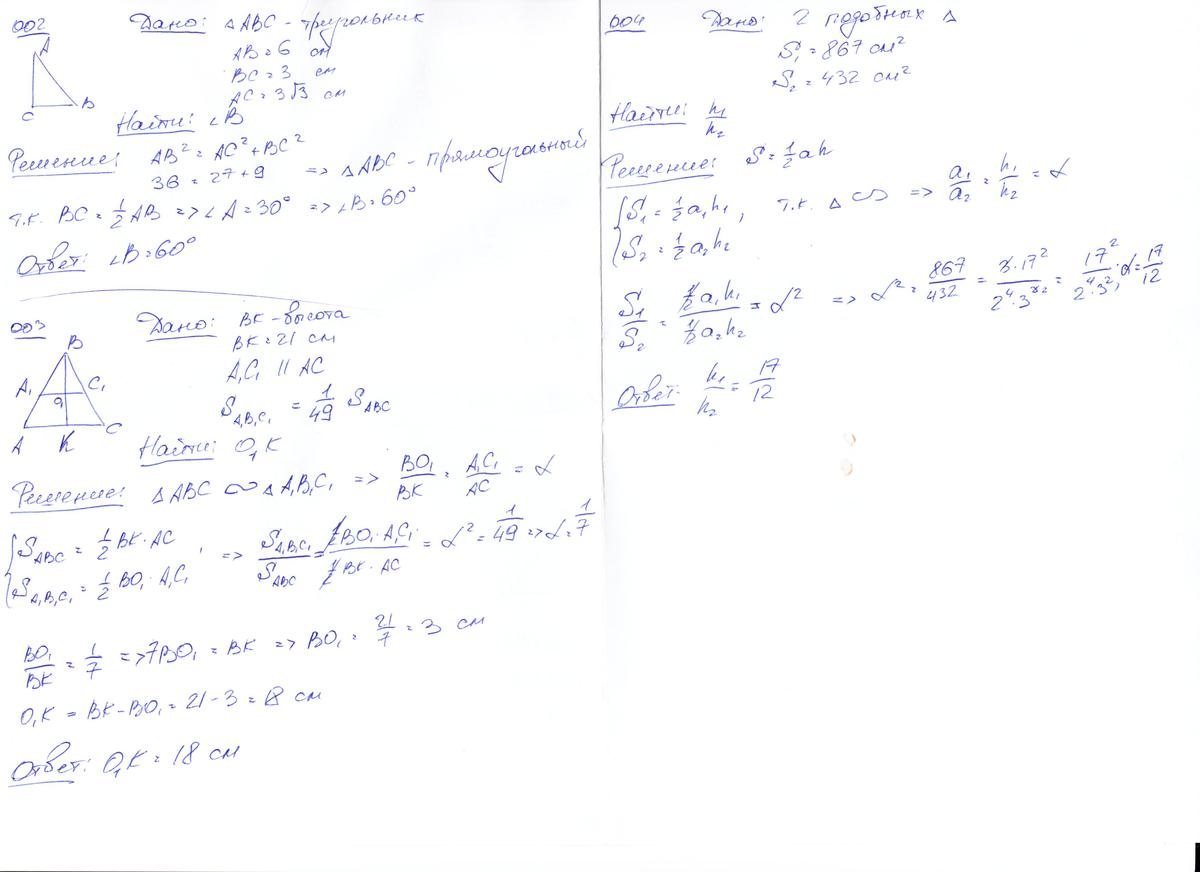 002 Дано: △ABC - треугольник
AB = 6 см
BC = 3 см
AC = 3√3 см
A
B
C
Найти: ∠B
Решение: AB² = AC² + BC²
36 = 27 + 9 => △ABC - прямоугольный
т.к. BC = 1/2 AB => ∠A = 30° => ∠B = 60°
Ответ: ∠B = 60°
003 Дано: BK - высота
BK = 21 см
A₁C₁ || AC
S_A₁B₁C₁ = 1/49 S_ABC
B
A₁ C₁
A K C
Найти: O₁K
Решение: △ABC ∽ △A₁B₁C₁ => BO₁/BK = A₁C₁/AC = α
{ S_ABC = 1/2 BK · AC
S_A₁B₁C₁ = 1/2 BO₁ · A₁C₁ , => S_A₁B₁C₁/S_ABC = 1/2 BO₁ · A₁C₁ / 1/2 BK · AC = α² = 1/49 => α = 1/7
BO₁/BK = 1/7 => 7BO₁ = BK => BO₁ = 21/7 = 3 см
O₁K = BK - BO₁ = 21 - 3 = 18 см
Ответ: O₁K = 18 см
004 Дано: 2 подобных △
S₁ = 867 см²
S₂ = 432 см²
Найти: h₁/h₂
Решение: S = 1/2 ah
{ S₁ = 1/2 a₁h₁ , т.к. △ ∽ => a₁/a₂ = h₁/h₂ = α
S₂ = 1/2 a₂h₂
S₁/S₂ = 1/2 a₁h₁ / 1/2 a₂h₂ = α² => α² = 867/432 = 3·17²/2⁴·3³ = 17²/2⁴·3²; α = 17/12
Ответ. h₁/h₂ = 17/12